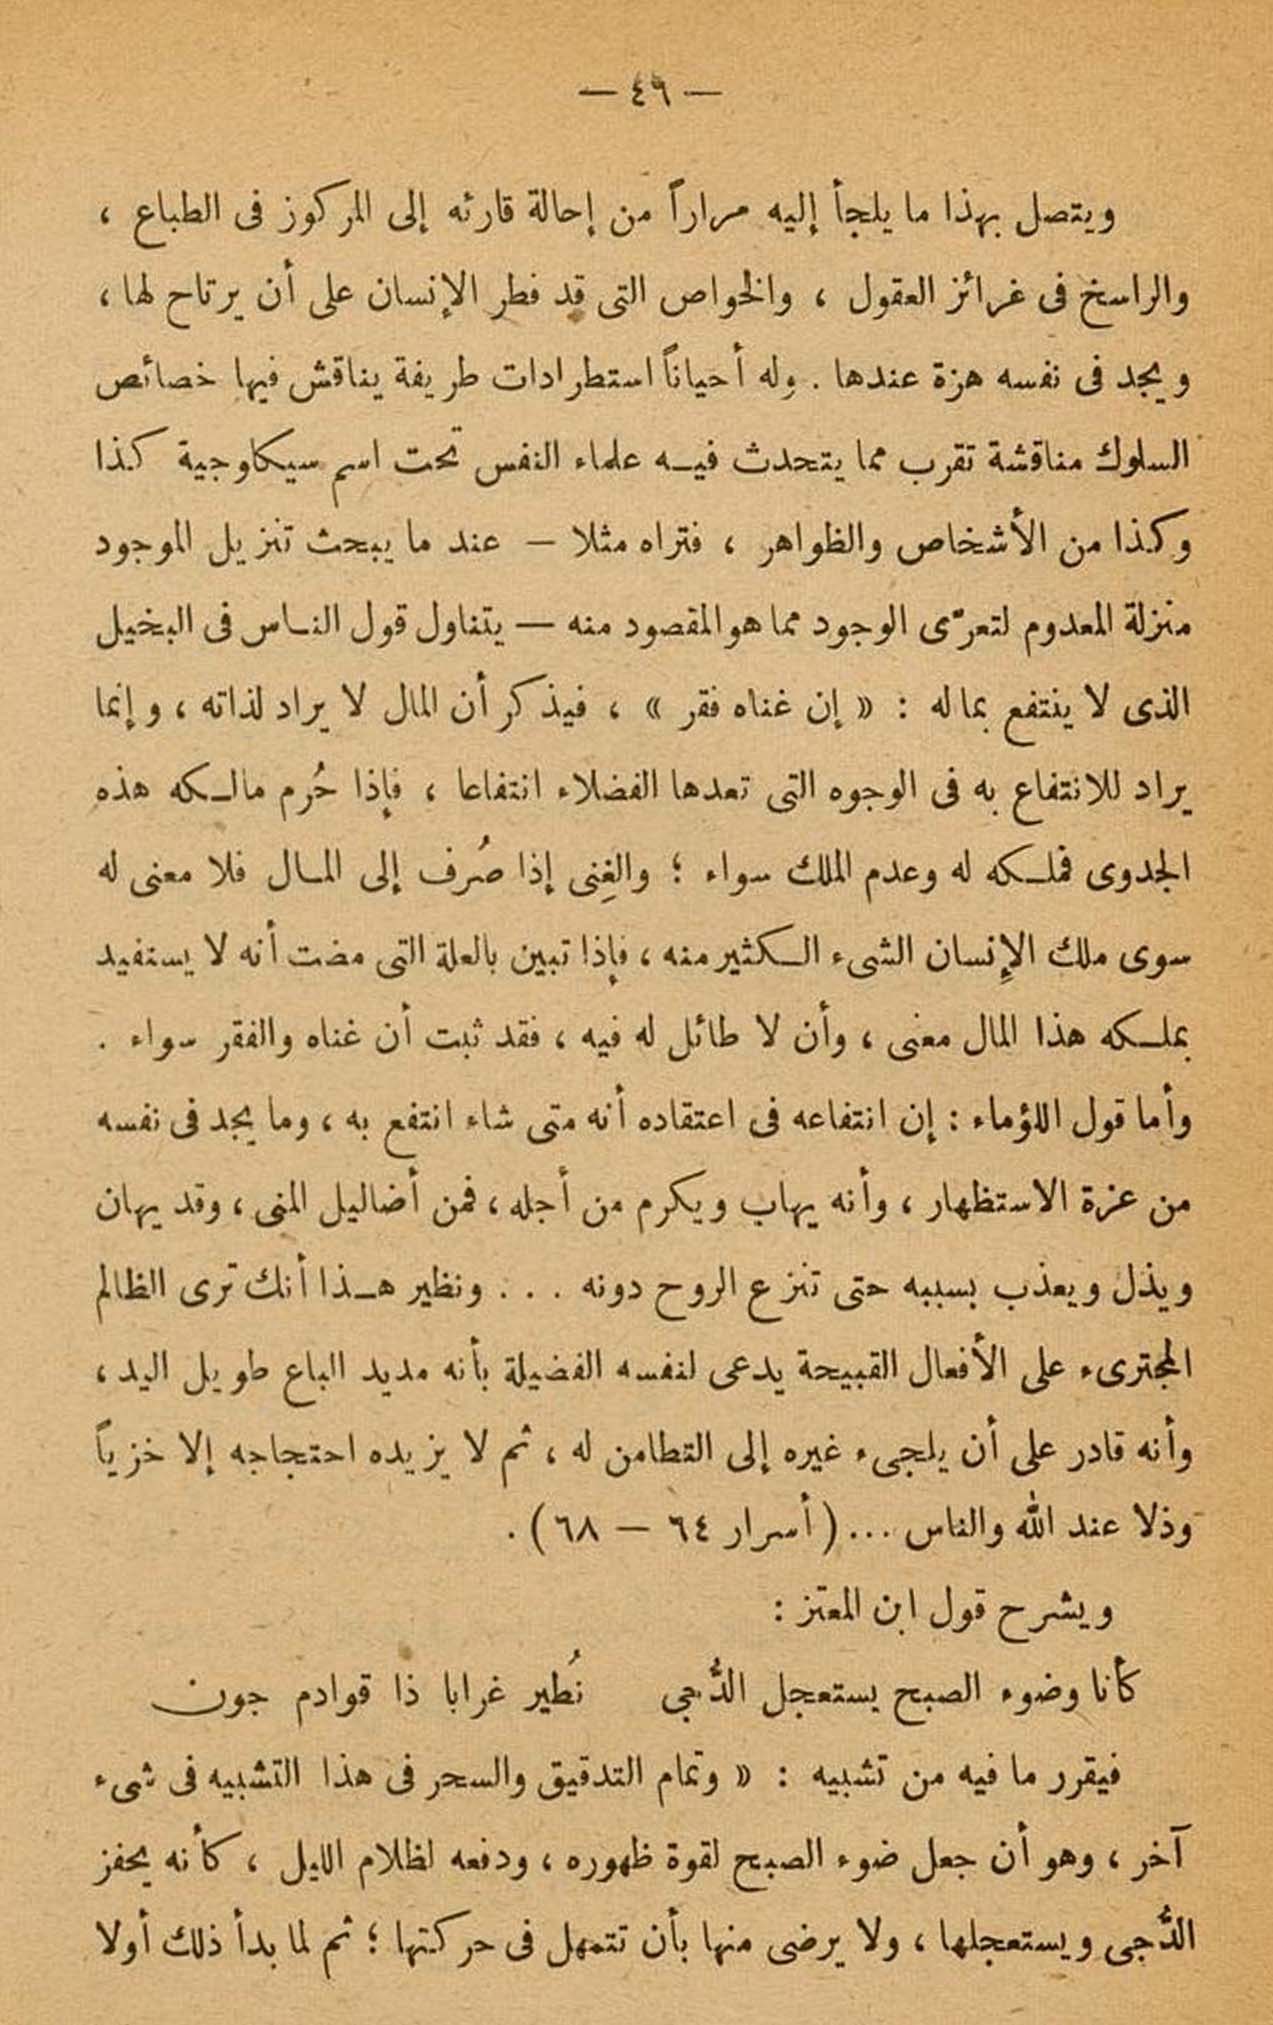 — ٤٩ —
ويتصل بهذا ما يلجأ إليه مراراً من إحالة قارئه إلى المركوز فى الطباع ،
والراسخ فى غرائز العقول ، والخواص التى قد فطر الإنسان على أن يرتاح لها ،
ويجد فى نفسه هزة عندها . وله أحياناً استطرادات طريفة يناقش فيها خصائص
السلوك مناقشة تقرب مما يتحدث فيه علماء النفس تحت اسم سيكلوجية كذا
وكذا من الأشخاص والظواهر ، فتراه مثلا — عند ما يبحث تنزيل الموجود
منزلة المعدوم لتعرّى الوجود مما هو المقصود منه — يتناول قول الناس فى البخيل
الذى لا ينتفع بماله : « إن غناه فقر » ، فيذكر أن المال لا يراد لذاته ، وإنما
يراد للانتفاع به فى الوجوه التى تعدها الفضلاء انتفاعا ، فإذا حُرم مالكه هذه
الجدوى فملكه له وعدم الملك سواء ؛ والغِنى إذا صُرف إلى المال فلا معنى له
سوى ملك الإِنسان الشىء الكثير منه ، فإذا تبين بالعلة التى مضت أنه لا يستفيد
بملكه هذا المال معنى ، وأن لا طائل له فيه ، فقد ثبت أن غناه والفقر سواء .
وأما قول اللؤماء : إن انتفاعه فى اعتقاده أنه متى شاء انتفع به ، وما يجد فى نفسه
من عزة الاستظهار ، وأنه يهاب ويكرم من أجله ، فمن أضاليل المنى ، وقد يهان
ويذل ويعذب بسببه حتى تنزع الروح دونه . . . ونظير هذا أنك ترى الظالم
المجترىء على الأفعال القبيحة يدعى لنفسه الفضيلة بأنه مديد الباع طويل اليد ،
وأنه قادر على أن يلجىء غيره إلى التطامن له ، ثم لا يزيده احتجاجه إلا خزياً
وذلا عند الله والناس ... ( أسرار ٦٤ — ٦٨ ) .
ويشرح قول ابن المعتز :
كأنا وضوء الصبح يستعجل الدُّجى نُطير غرابا ذا قوادم جون
فيقرر ما فيه من تشبيه : « وتمام التدقيق والسحر فى هذا التشبيه فى شىء
آخر ، وهو أن جعل ضوء الصبح لقوة ظهوره ، ودفعه لظلام الليل ، كأنه يحفز
الدُّجى ويستعجلها ، ولا يرضى منها بأن تتمهل فى حركتها ؛ ثم لما بدأ ذلك أولا